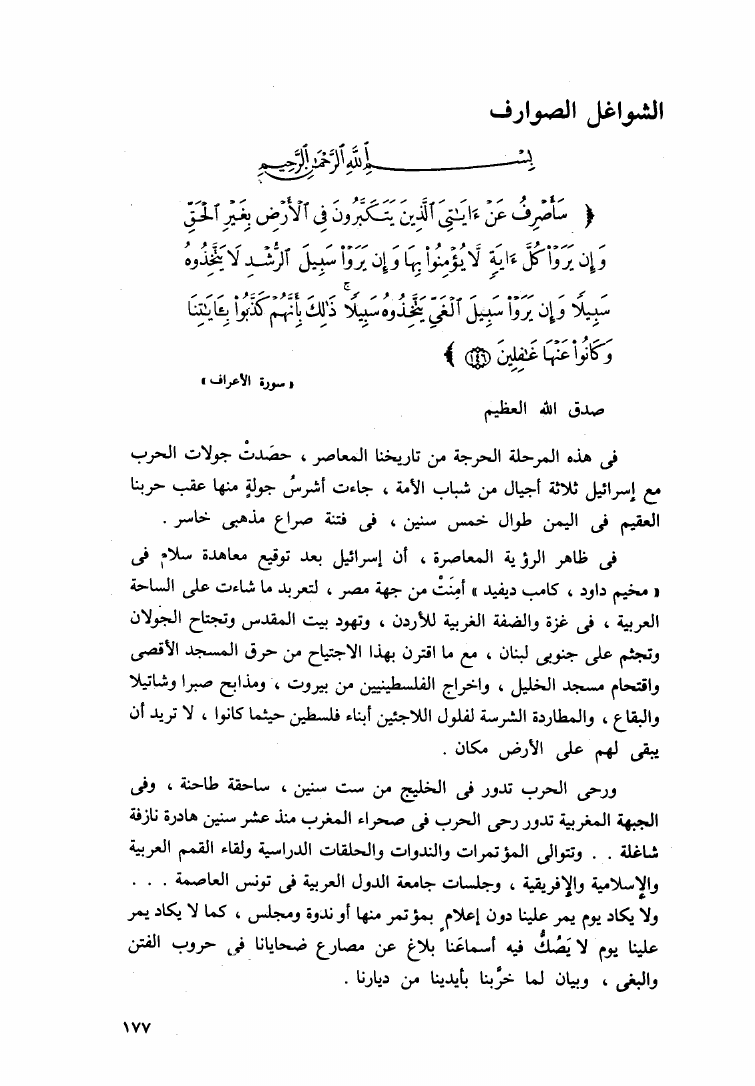 الشواغل الصوارف
بِسْمِ اللَّهِ الرَّحْمَٰنِ الرَّحِيمِ
﴿ سَأَصْرِفُ عَنْ ءَايَٰتِىَ ٱلَّذِينَ يَتَكَبَّرُونَ فِى ٱلْأَرْضِ بِغَيْرِ ٱلْحَقِّ
وَإِن يَرَوْا۟ كُلَّ ءَايَةٍ لَّا يُؤْمِنُوا۟ بِهَا وَإِن يَرَوْا۟ سَبِيلَ ٱلرُّشْدِ لَا يَتَّخِذُوهُ
سَبِيلًا وَإِن يَرَوْا۟ سَبِيلَ ٱلْغَىِّ يَتَّخِذُوهُ سَبِيلًا ۚ ذَٰلِكَ بِأَنَّهُمْ كَذَّبُوا۟ بِـَٔايَٰتِنَا
وَكَانُوا۟ عَنْهَا غَٰفِلِينَ ١٤٦ ﴾
« سورة الأعراف »
صدق الله العظيم
فى هذه المرحلة الحرجة من تاريخنا المعاصر ، حصَدتْ جولات الحرب
مع إسرائيل ثلاثة أجيال من شباب الأمة ، جاءت أشرسُ جولةٍ منها عقب حربنا
العقيم فى اليمن طوال خمس سنين ، فى فتنة صراع مذهبى خاسر .
فى ظاهر الرؤية المعاصرة ، أن إسرائيل بعد توقيع معاهدة سلام فى
« مخيم داود ، كامب ديفيد » أمِنَتْ من جهة مصر ، لتعربد ما شاءت على الساحة
العربية ، فى غزة والضفة الغربية للأردن ، وتهود بيت المقدس وتجتاح الجولان
وتجثم على جنوبى لبنان ، مع ما اقترن بهذا الاجتياح من حرق المسجد الأقصى
واقتحام مسجد الخليل ، واخراج الفلسطينيين من بيروت ، ومذابح صبرا وشاتيلا
والبقاع ، والمطاردة الشرسة لفلول اللاجئين أبناء فلسطين حيثما كانوا ، لا تريد أن
يبقى لهم على الأرض مكان .
ورحى الحرب تدور فى الخليج من ست سنين ، ساحقة طاحنة ، وفى
الجبهة المغربية تدور رحى الحرب فى صحراء المغرب منذ عشر سنين هادرة نازفة
شاغلة . . وتتوالى المؤتمرات والندوات والحلقات الدراسية ولقاء القمم العربية
والإسلامية والإفريقية ، وجلسات جامعة الدول العربية فى تونس العاصمة . . .
ولا يكاد يوم يمر علينا دون إعلامٍ بمؤتمر منها أو ندوة ومجلس ، كما لا يكاد يمر
علينا يوم لا يَصُكُّ فيه أسماعَنا بلاغ عن مصارع ضحايانا فى حروب الفتن
والبغى ، وبيان لما خرَّبنا بأيدينا من ديارنا .
١٧٧